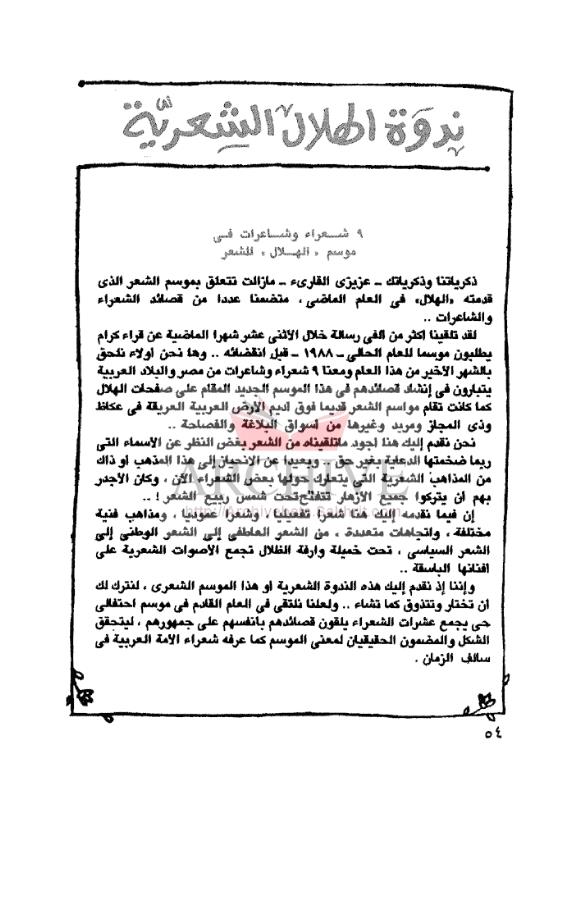 ندوة الهلال الشعريّة
٩ شعراء وشاعرات في
موسم «الهلال» للشعر
ذكرياتنا وذكرياتك ـ عزيزى القارىء ـ مازالت تتعلق بموسم الشعر الذى
قدمته «الهلال» فى العام الماضى، متضمنا عددا من قصائد الشعراء
والشاعرات ..
لقد تلقينا اكثر من ألفى رسالة خلال الأثنى عشر شهرا الماضية عن قراء كرام
يطلبون موسما للعام الحالى ـ ١٩٨٨ ـ قبل انقضائه .. وها نحن اولاء نلحق
بالشهر الأخير من هذا العام ومعنا ٩ شعراء وشاعرات من مصر والبلاد العربية
يتبارون فى إنشاد قصائدهم فى هذا الموسم الجديد المقام على صفحات الهلال
كما كانت تقام مواسم الشعر قديما فوق اديم الأرض العربية العريقة فى عكاظ
وذى المجاز ومربد وغيرها من أسواق البلاغة والفصاحة ..
نحن نقدم إليك هنا أجود ماتلقيناه من الشعر بغض النظر عن الأسماء التى
ربما ضخمتها الدعاية بغير حق .. وبعيدا عن الانحياز إلى هذا المذهب أو ذاك
من المذاهب الشعرية التى يتعارك حولها بعض الشعراء الآن ، وكان الأجدر
بهم أن يتركوا جميع الأزهار تتفتح تحت شمس ربيع الشعر ! ..
إن فيما نقدمه إليك هنا شعرا تفعيليا ، وشعرا عموديا ، ومذاهب فنية
مختلفة ، واتجاهات متعددة ، من الشعر العاطفى إلى الشعر الوطنى إلى
الشعر السياسى ، تحت خميلة وارفة الظلال تجمع الأصوات الشعرية على
افنانها الباسقة ..
وإننا إذ نقدم إليك هذه الندوة الشعرية او هذا الموسم الشعرى ، لنترك لك
ان تختار وتتذوق كما تشاء .. ولعلنا نلتقى فى العام القادم فى موسم احتفالى
حى يجمع عشرات الشعراء يلقون قصائدهم بانفسهم على جمهورهم ، ليتحقق
الشكل والمضمون الحقيقيان لمعنى الموسم كما عرفه شعراء الأمة العربية فى
سالف الزمان .
٥٤
ARCHIVE